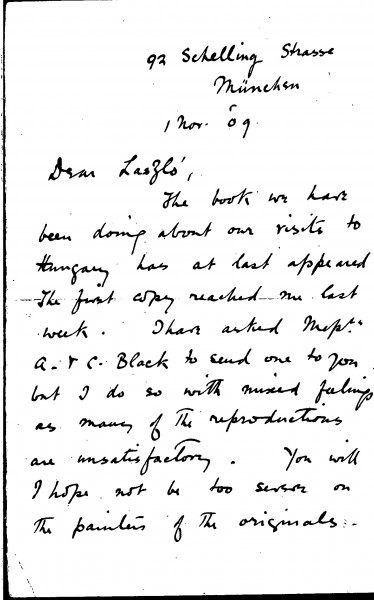 92 Schelling Strasse
München
1 Nov. 09
Dear Laszló,
The book we have
been doing about our visits to
Hungary has at last appeared
The first copy reached me last
week. I have asked Messrs
A. & C. Black to send one to you
but I do so with mixed feelings
as many of the reproductions
are unsatisfactory. You will
I hope not be too severe on
the painters of the originals.